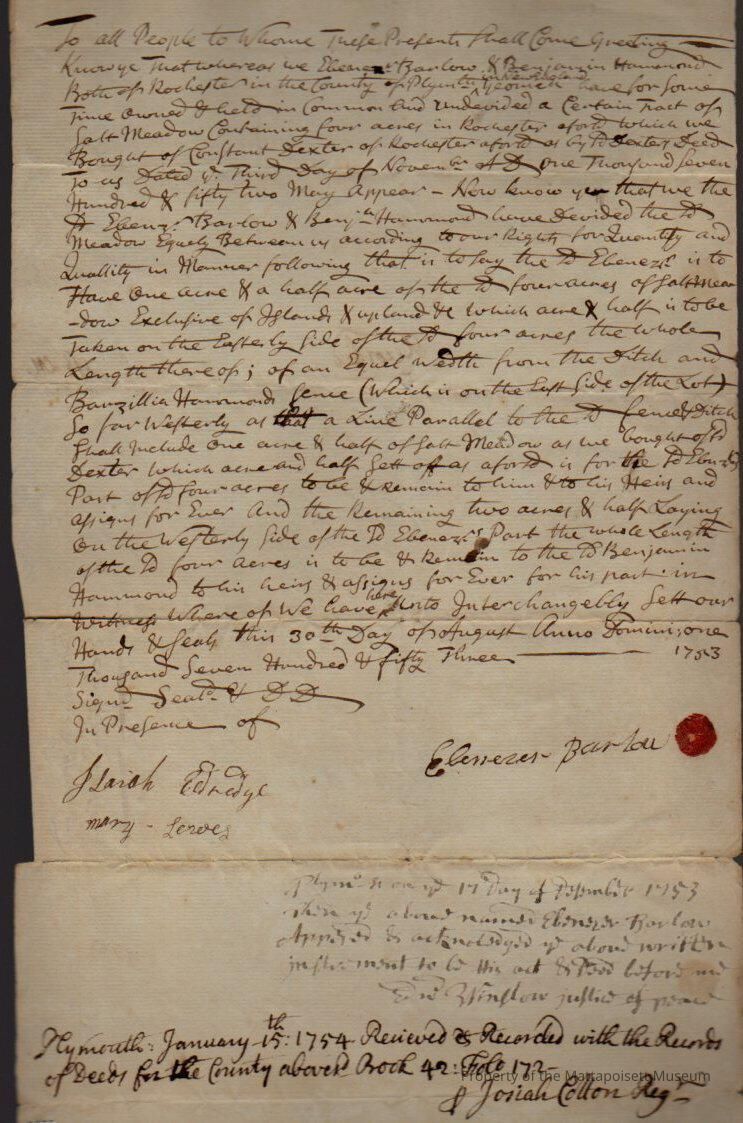 To all People to Whome These Presents Shall Come Greeting
Know ye That whereas we Ebenezr Barlow & Benjamin Hammond
Both of Rochester in the County of Plymth in New England Yeomen have for Some
Time owned & held in Common and undevided a Certain Tract of
Salt Meadow Containing four acres in Rochester aforsd which we
Bought of Constant Dexter of Rochester aforsd as by sd Dexters Deed
To us Dated ye Third Day of Novembr AD one Thousand Seven
Hundred & fifty two May Appear – Now know yee that we the
sd Ebenzr Barlow & Benjth Hammond have Devided the sd
Meadow Equely Between us according to our Rights for Quantity and
Quallity in Manner following that is to Say the sd Ebenezr is to
Have One acre & a half acre of the sd four acres of Salt Mea
-dow Exclusive of Islands & upland &c which acre & half is to be
Taken on the Easterly Side of the sd four acres the whole
Length there of; of an Equel Wedth from the Ditch and
Barzillia Hammonds fence (Which is on the East Side of the Lot)
So far Westerly as that a Line Parallel to the sd fence & Ditch
Shall Include One acre & half of Salt Meadow as we bought of sd
Dexter Which acre and half Sett off as aforsd is for the sd Ebenzrs
Part of sd four acres to be & remain to him & to his Heirs and
assigns for Ever And the Remaining two acres & half Laying
On the Westerly Side of the sd Ebenezrs Part the whole Length
of the sd four acres is to be & Remain to the sd Benjamin
Hammond to his heirs & assigns for Ever for his part in
Witness Where of We have here unto Interchangebly Sett our
Hands & Seals this 30th Day of August Anno Domini; one
Thousand Seven Hundred & fifty Three 1753
Signd Seald & D D
In Presence of
Ebenezer Barlow
Isaiah Eldredge
mary Lewes
Plymo ss on ye 17 Day of Desember 1753
then ye above named Ebenezer Barlow
Appered & acknoledged ye above written
instrement to be His act & Deed before me
Edwd Winslow justice of peace
Plymouth: January 15th: 1754 Recieved & Recorded with the Records
of Deeds for the County abovesd Book 42: Folo 172–
P Josiah Cotton Regr
Property of the Mattapoisett Museum